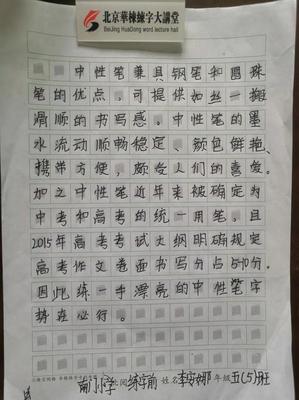 北京華棟練字大講堂
BeiJing HuaDong word lecture hall
中性笔兼具钢笔和圆珠
笔的优点，可提供如丝一般
滑顺的书写感。中性笔的墨
水流动顺畅稳定、颜色鲜艳、
携带方便，颇受人们的喜爱。
加之中性笔近年来被确定为
中考和高考的统一用笔，且
2015年高考考试大纲明确规定
高考作文卷面书写分占5-10分。
因此练一手漂亮的中性笔字
势在必行。
南门小学 练字前 姓名李安娜 年级五(5)班